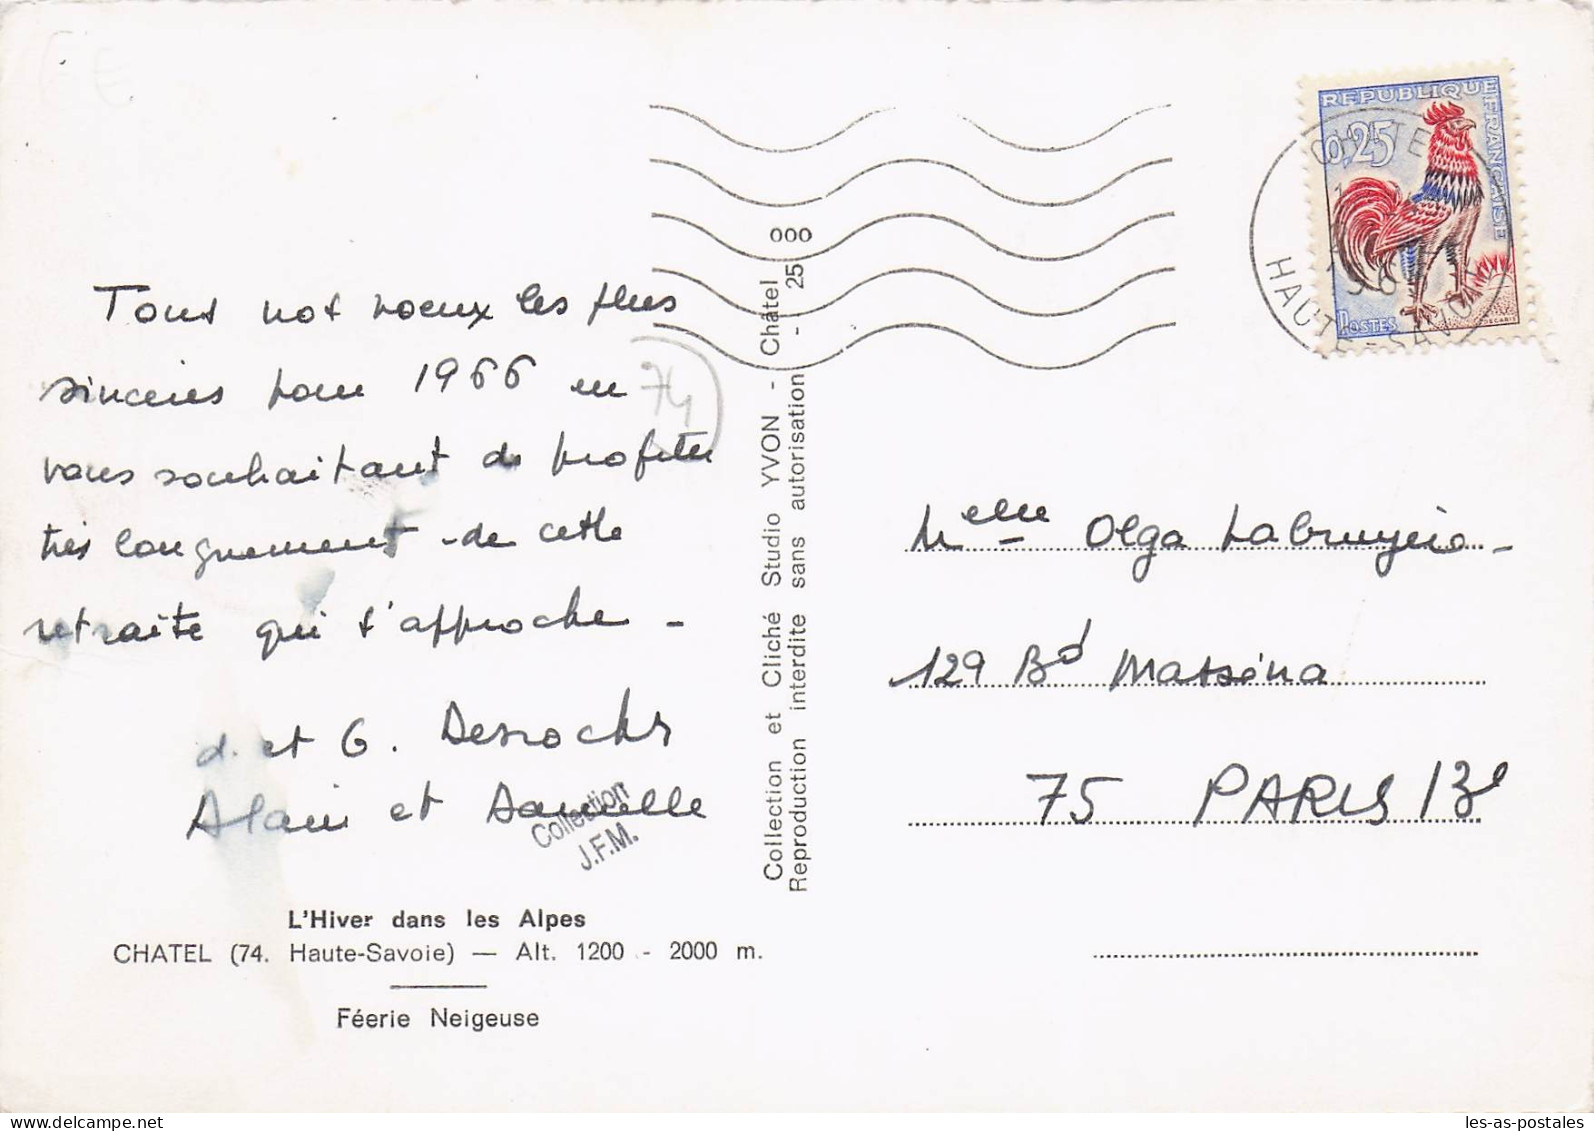 Tous nos voeux les plus
sincères pour 1966 en
vous souhaitant de profiter
très longuement de cette
retraite qui s'approche -
et G. Desrochs
Alain et
Collection
J.F.M.
L'Hiver dans les Alpes
CHATEL (74. Haute-Savoie) — Alt. 1200 - 2000 m.
Féerie Neigeuse
74
Collection et Cliché Studio YVON - Châtel
Reproduction interdite sans autorisation - 25
000
REPUBLIQUE FRANÇAISE
0,25
POSTES
CHATEL
HAUTE-SAVOIE
Melle Olga Labruyère -
129 Bd Masséna
75 PARIS 13e
les-as-postales